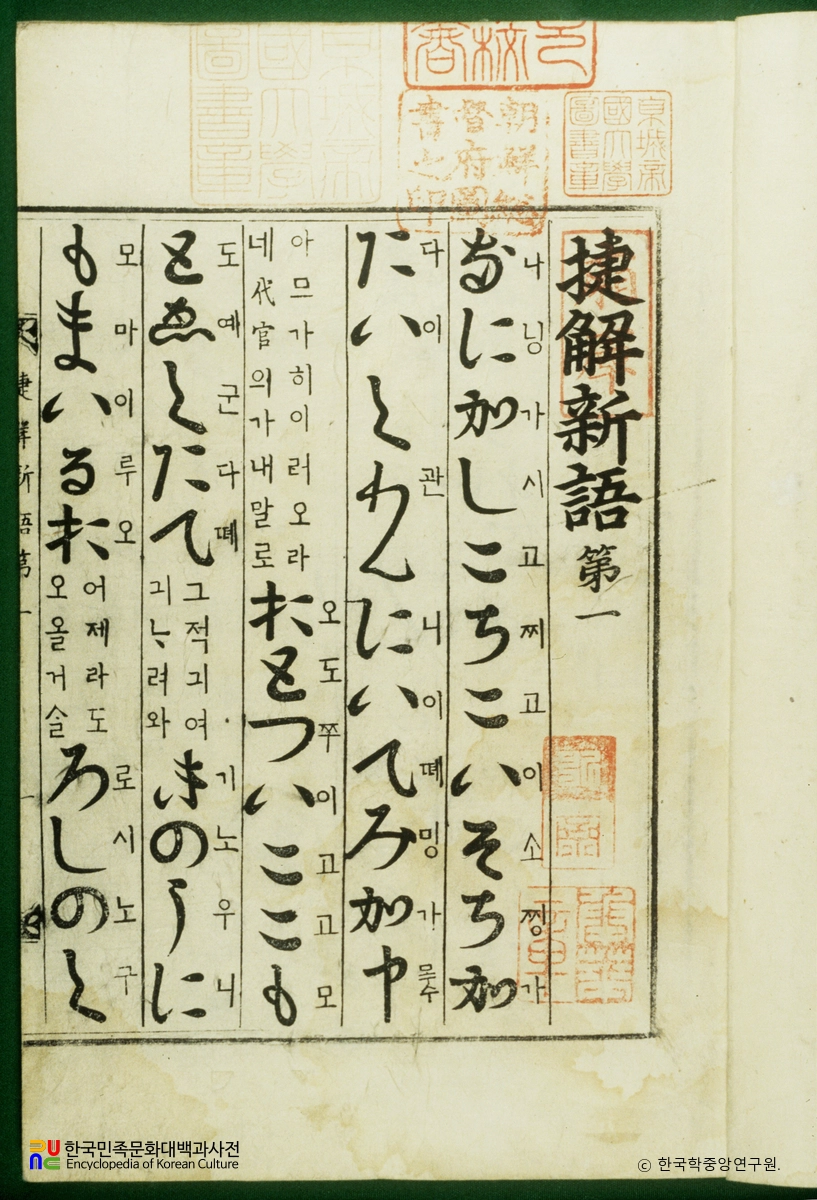 捷解新語 第一
なにかしこちこいそちか
나닝가시고찌고이소찡가
たいくわんにいてみか申
다이관니이뗴밍가
아므가히이러오라
네代官의가내말로
おとついここも
오도쭈이고고모
とゑくたて
도예군다뗴
그적긔여
긔ᄂᆞ려와
きのうに
기노우니
もまいるお
모마이루오
어제라도
오올거슬
ろしのく
로시노구
捷解新語第一
朝鮮總督府圖書之印
京城帝國大學圖書章
京城帝國大學圖書章
한국민족문화대백과사전
Encyclopedia of Korean Culture
© 한국학중앙연구원.